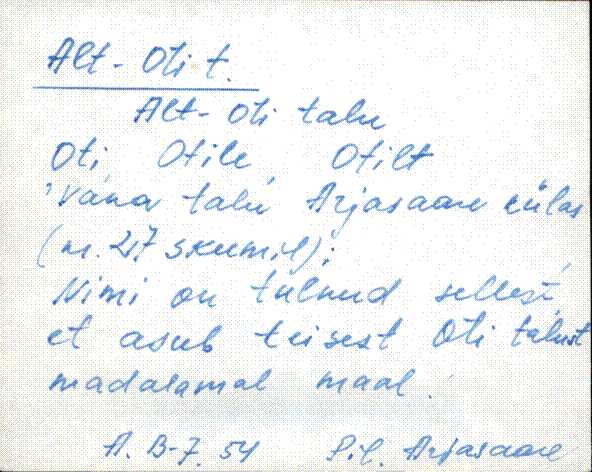 Alt-Oti t.
Alt-Oti talu
Oti Otile Otilt
Vana talu Arjasaare külas
(nr. 217 skeemil);
Nimi on tulnud sellest,
et asub teisest Oti talust
madalamal maal.
A. B-7. 54 Pil. Arjasaare